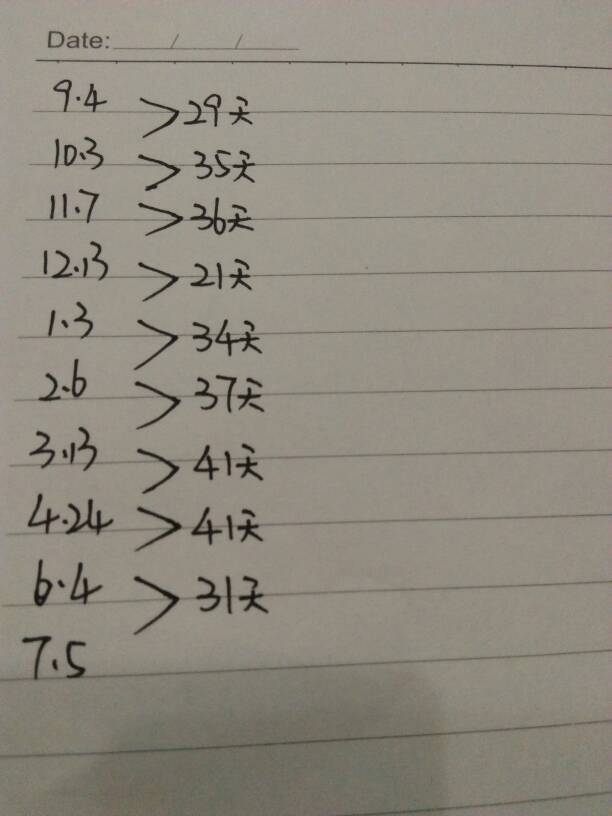 Date: / /
9.4
>29天
10.3
>35天
11.7
>36天
12.13
>21天
1.3
>34天
2.6
>37天
3.13
>41天
4.24
>41天
6.4
>31天
7.5